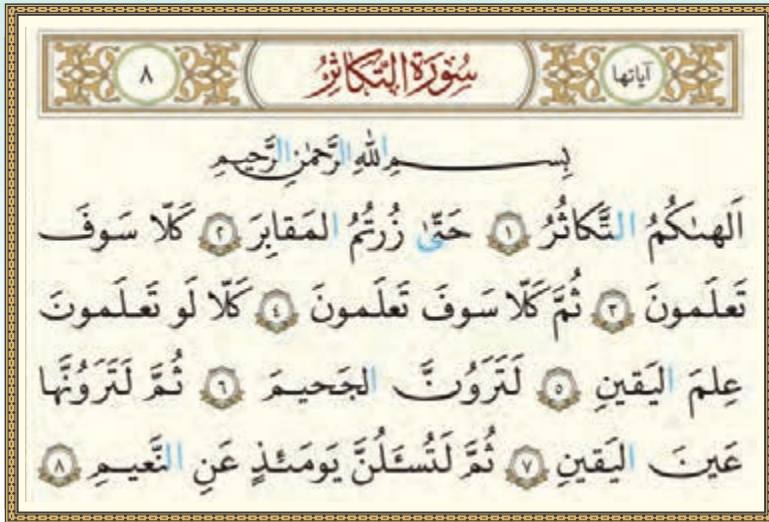 آیاتها سُورَةُ التَّكاثُرِ ٨
بِسمِ اللهِ الرَّحمٰنِ الرَّحيمِ
اَلهىٰكُمُ التَّكاثُرُ ١ حَتّىٰ زُرتُمُ المَقابِرَ ٢ كَلّا سَوفَ
تَعلَمونَ ٣ ثُمَّ كَلّا سَوفَ تَعلَمونَ ٤ كَلّا لَو تَعلَمونَ
عِلمَ اليَقينِ ٥ لَتَرَوُنَّ الجَحيمَ ٦ ثُمَّ لَتَرَوُنَّها
عَينَ اليَقينِ ٧ ثُمَّ لَتُسـَٔلُنَّ يَومَئِذٍ عَنِ النَّعيمِ ٨